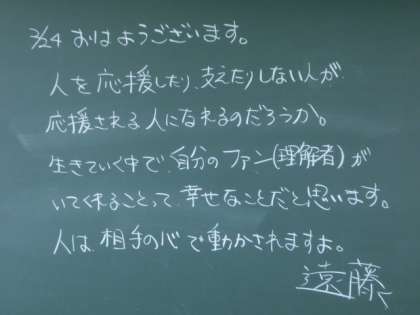 3/24 おはようございます。
人を応援したり、支えたりしない人が
応援される人になれるのだろうか。
生きていく中で、自分のファン(理解者)が
いてくれることって、幸せなことだと思います。
人は、相手の心で動かされますよ。
遠藤